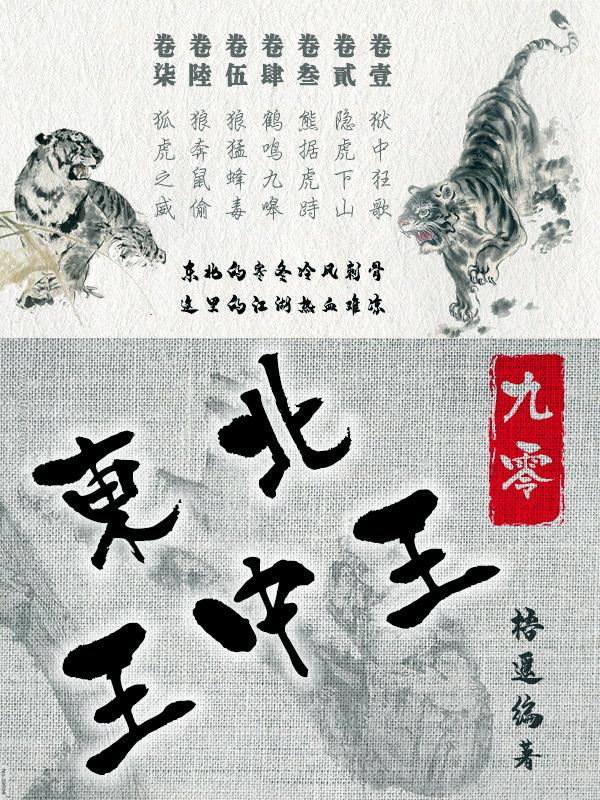 卷壹 狱中狂歌
卷貳 隐虎下山
卷叁 熊据虎跱
卷肆 鹤鸣九嗥
卷伍 狼猛蜂毒
卷陸 狼奔鼠偷
卷柒 狐虎之威
东北的寒冬冷风刺骨
这里的江湖热血难凉
九零
東北
王中王
梧编著